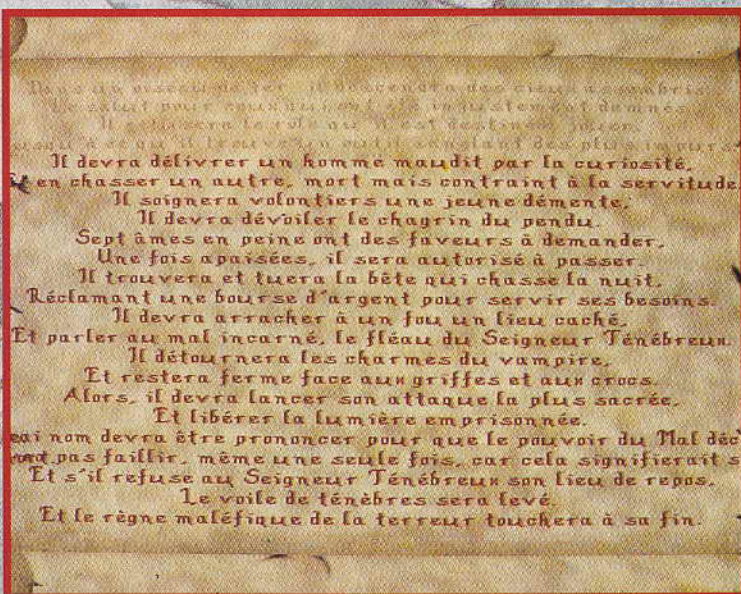 Dans un oiseau de fer, il descendra des cieux assombris
Le salut pour ceux qui ont été injustement damnés
Il
le rôle qu'il est destiné à jouer
ce qu'il trouve un outil sanglant des plus impurs
Il devra délivrer un homme maudit par la curiosité,
en chasser un autre, mort mais contraint à la servitude,
Il soignera volontiers une jeune démente,
Il devra dévoiler le chagrin du pendu.
Sept âmes en peine ont des faveurs à demander,
Une fois apaisées, il sera autorisé à passer.
Il trouvera et tuera la bête qui chasse la nuit,
Réclamant une bourse d'argent pour servir ses besoins.
Il devra arracher à un fou un lieu caché,
Et parler au mal incarné, le fléau du Seigneur Ténébreux
Il détournera les charmes du vampire,
Et restera ferme face aux griffes et aux crocs.
Alors, il devra lancer son attaque la plus sacrée,
Et libérer la lumière emprisonnée.
rai nom devra être prononcer pour que le pouvoir du Mal déc
pas faillir, même une seule fois, car cela signifierait s
Et s'il refuse au Seigneur Ténébreux son lieu de repos,
Le voile de ténèbres sera levé.
Et le règne maléfique de la terreur touchera à sa fin.